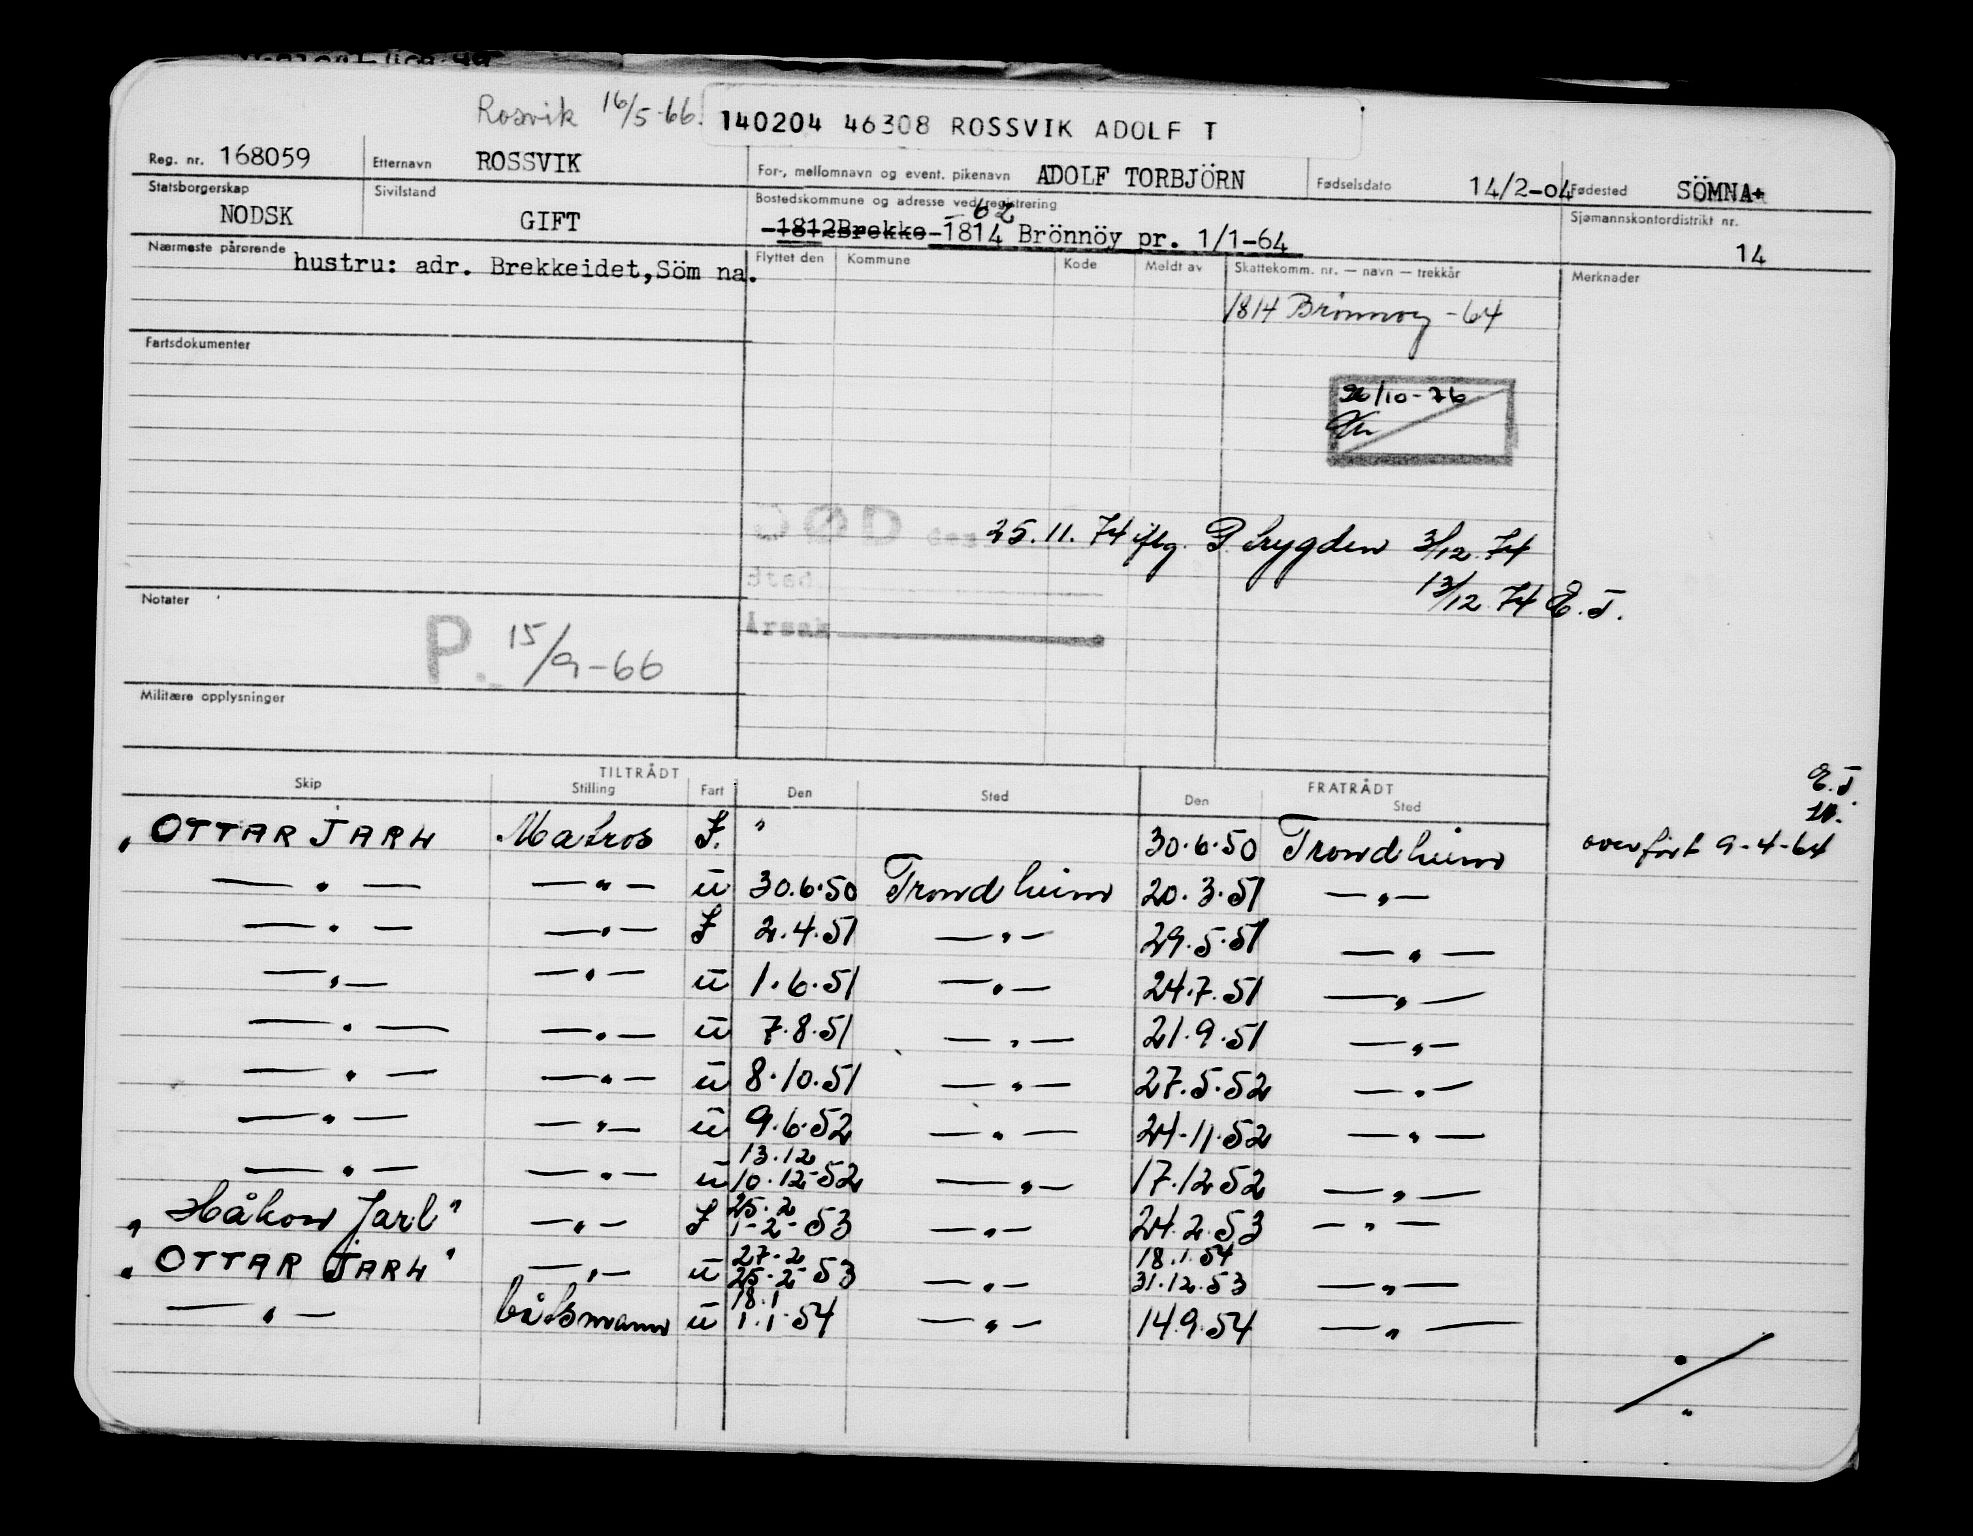 Rosvik 16/5-66. 140204 46308 ROSSVIK ADOLF T
Reg. nr. 168059 Etternavn ROSSVIK For-, mellomnavn og event. pikenavn ADOLF TORBJÖRN Fødselsdato 14/2-04 Fødested SÖMNA
Statsborgerskap NODSK Sivilstand GIFT Bostedskommune og adresse ved registrering Sjømannskontordistrikt nr. 14
62
-1812Brekke-1814 Brönnöy pr. 1/1-64
Nærmeste pårørende hustru: adr. Brekkeidet,Söm na.
Flyttet den Kommune Kode Meldt av Skattekomm. nr. — navn — trekkår Merknader
1814 Brönnöy -64
Fartsdokumenter
26/10-76
DØD den 25.11.74 iflg. P trygden 3/12.74
Sted
13/12 74 E.T.
Årsak
Notater
P. 15/9-66
Militære opplysninger
TILTRÅDT FRATRÅDT
Skip Stilling Fart Den Sted Den Sted
E.T
"OTTAR JARL Matros I. " 30.6.50 Trondheim overført 9-4-64
—"— —"— u 30.6.50 Trondheim 20.3.51 —"—
—"— —"— I 2.4.51 —"— 29.5.51 —"—
—"— —"— u 1.6.51 —"— 24.7.51 —"—
—"— —"— u 7.8.51 —"— 21.9.51 —"—
—"— —"— u 8.10.51 —"— 27.5.52 —"—
—"— —"— u 9.6.52 —"— 24.11.52 —"—
13.12
—"— —"— u 10.12-52 —"— 17.12.52 —"—
25.2
"Håkon Jarl" —"— I 1-2-53 —"— 24.2.53 —"—
27-2 18.1.54
"OTTAR JARL" —"— u 25-2-53 —"— 31.12.53 —"—
18.1
—"— båtsmann u 1.1.54 —"— 14.9.54 —"—